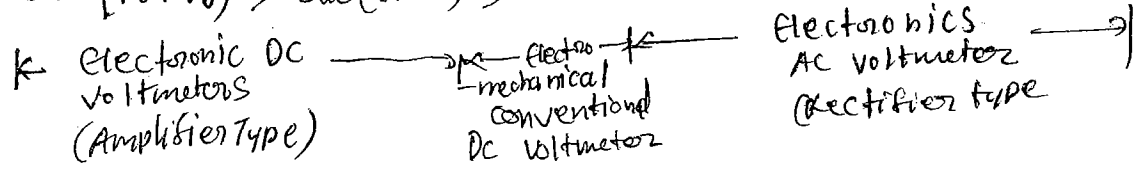 Electronic DC
voltmeters
(Amplifier Type)
Electro
-mechanical
conventional
DC voltmeter
Electronics
AC voltmeter
(Rectifier type